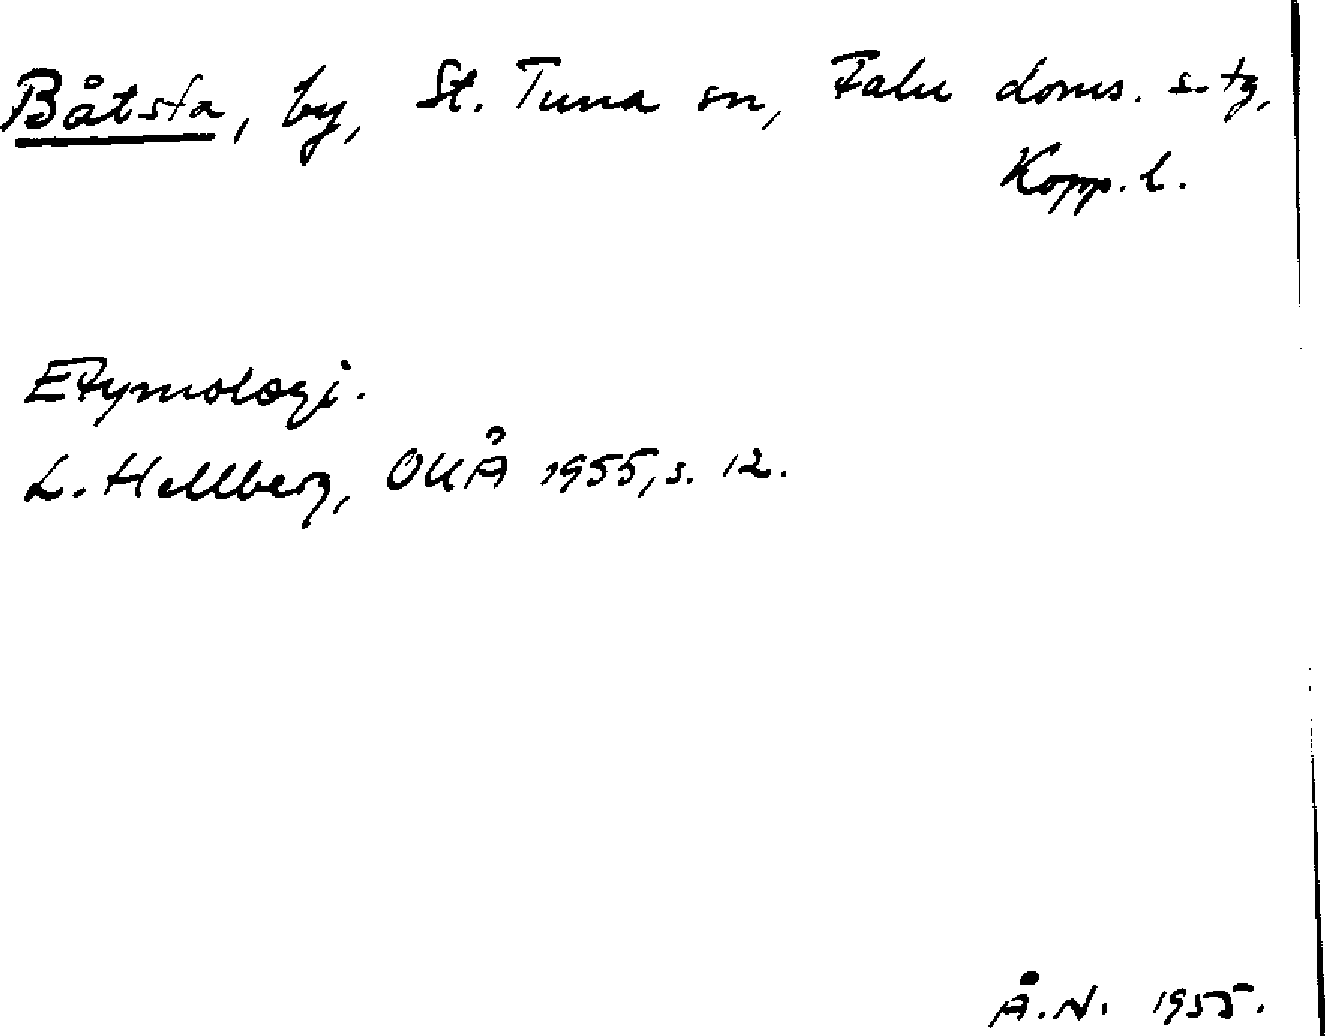 Båtsta, by, St. Tuna sn, Falu doms. s. tg,
Kopp. l.
Etymologi.
L. Hellberg, OUÅ 1955, s. 12.
Å.N. 1955.